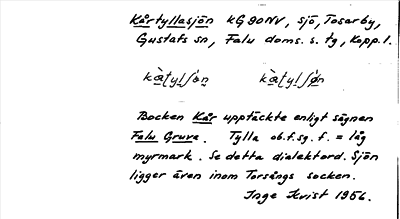 Kårtyllasjön kG90NV, sjö, Tosarby,
Gustafs sn, Falu doms. s. tg, Kopp. l.
Bocken Kår upptäckte enligt sägnen
Falu Gruva. Tylla ob.f.sg. f. = låg
myrmark. Se detta dialektord. Sjön
ligger även inom Torsångs socken.
Inge Kvist 1956.